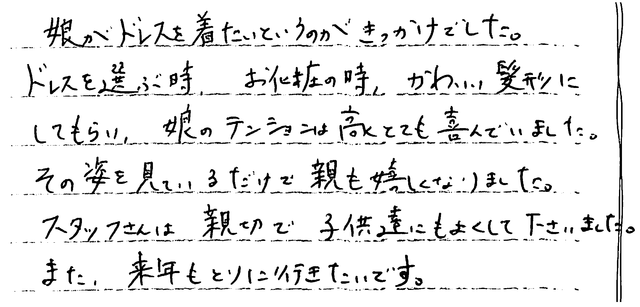 娘がドレスを着たいというのがきっかけでした。
ドレスを選ぶ時、お化粧の時、かわいい髪形に
してもらい、娘のテンションは高くとても喜んでいました。
その姿を見ているだけで親も嬉しくなりました。
スタッフさんは親切で子供達にもよくして下さいました。
また、来年もとりに行きたいです。